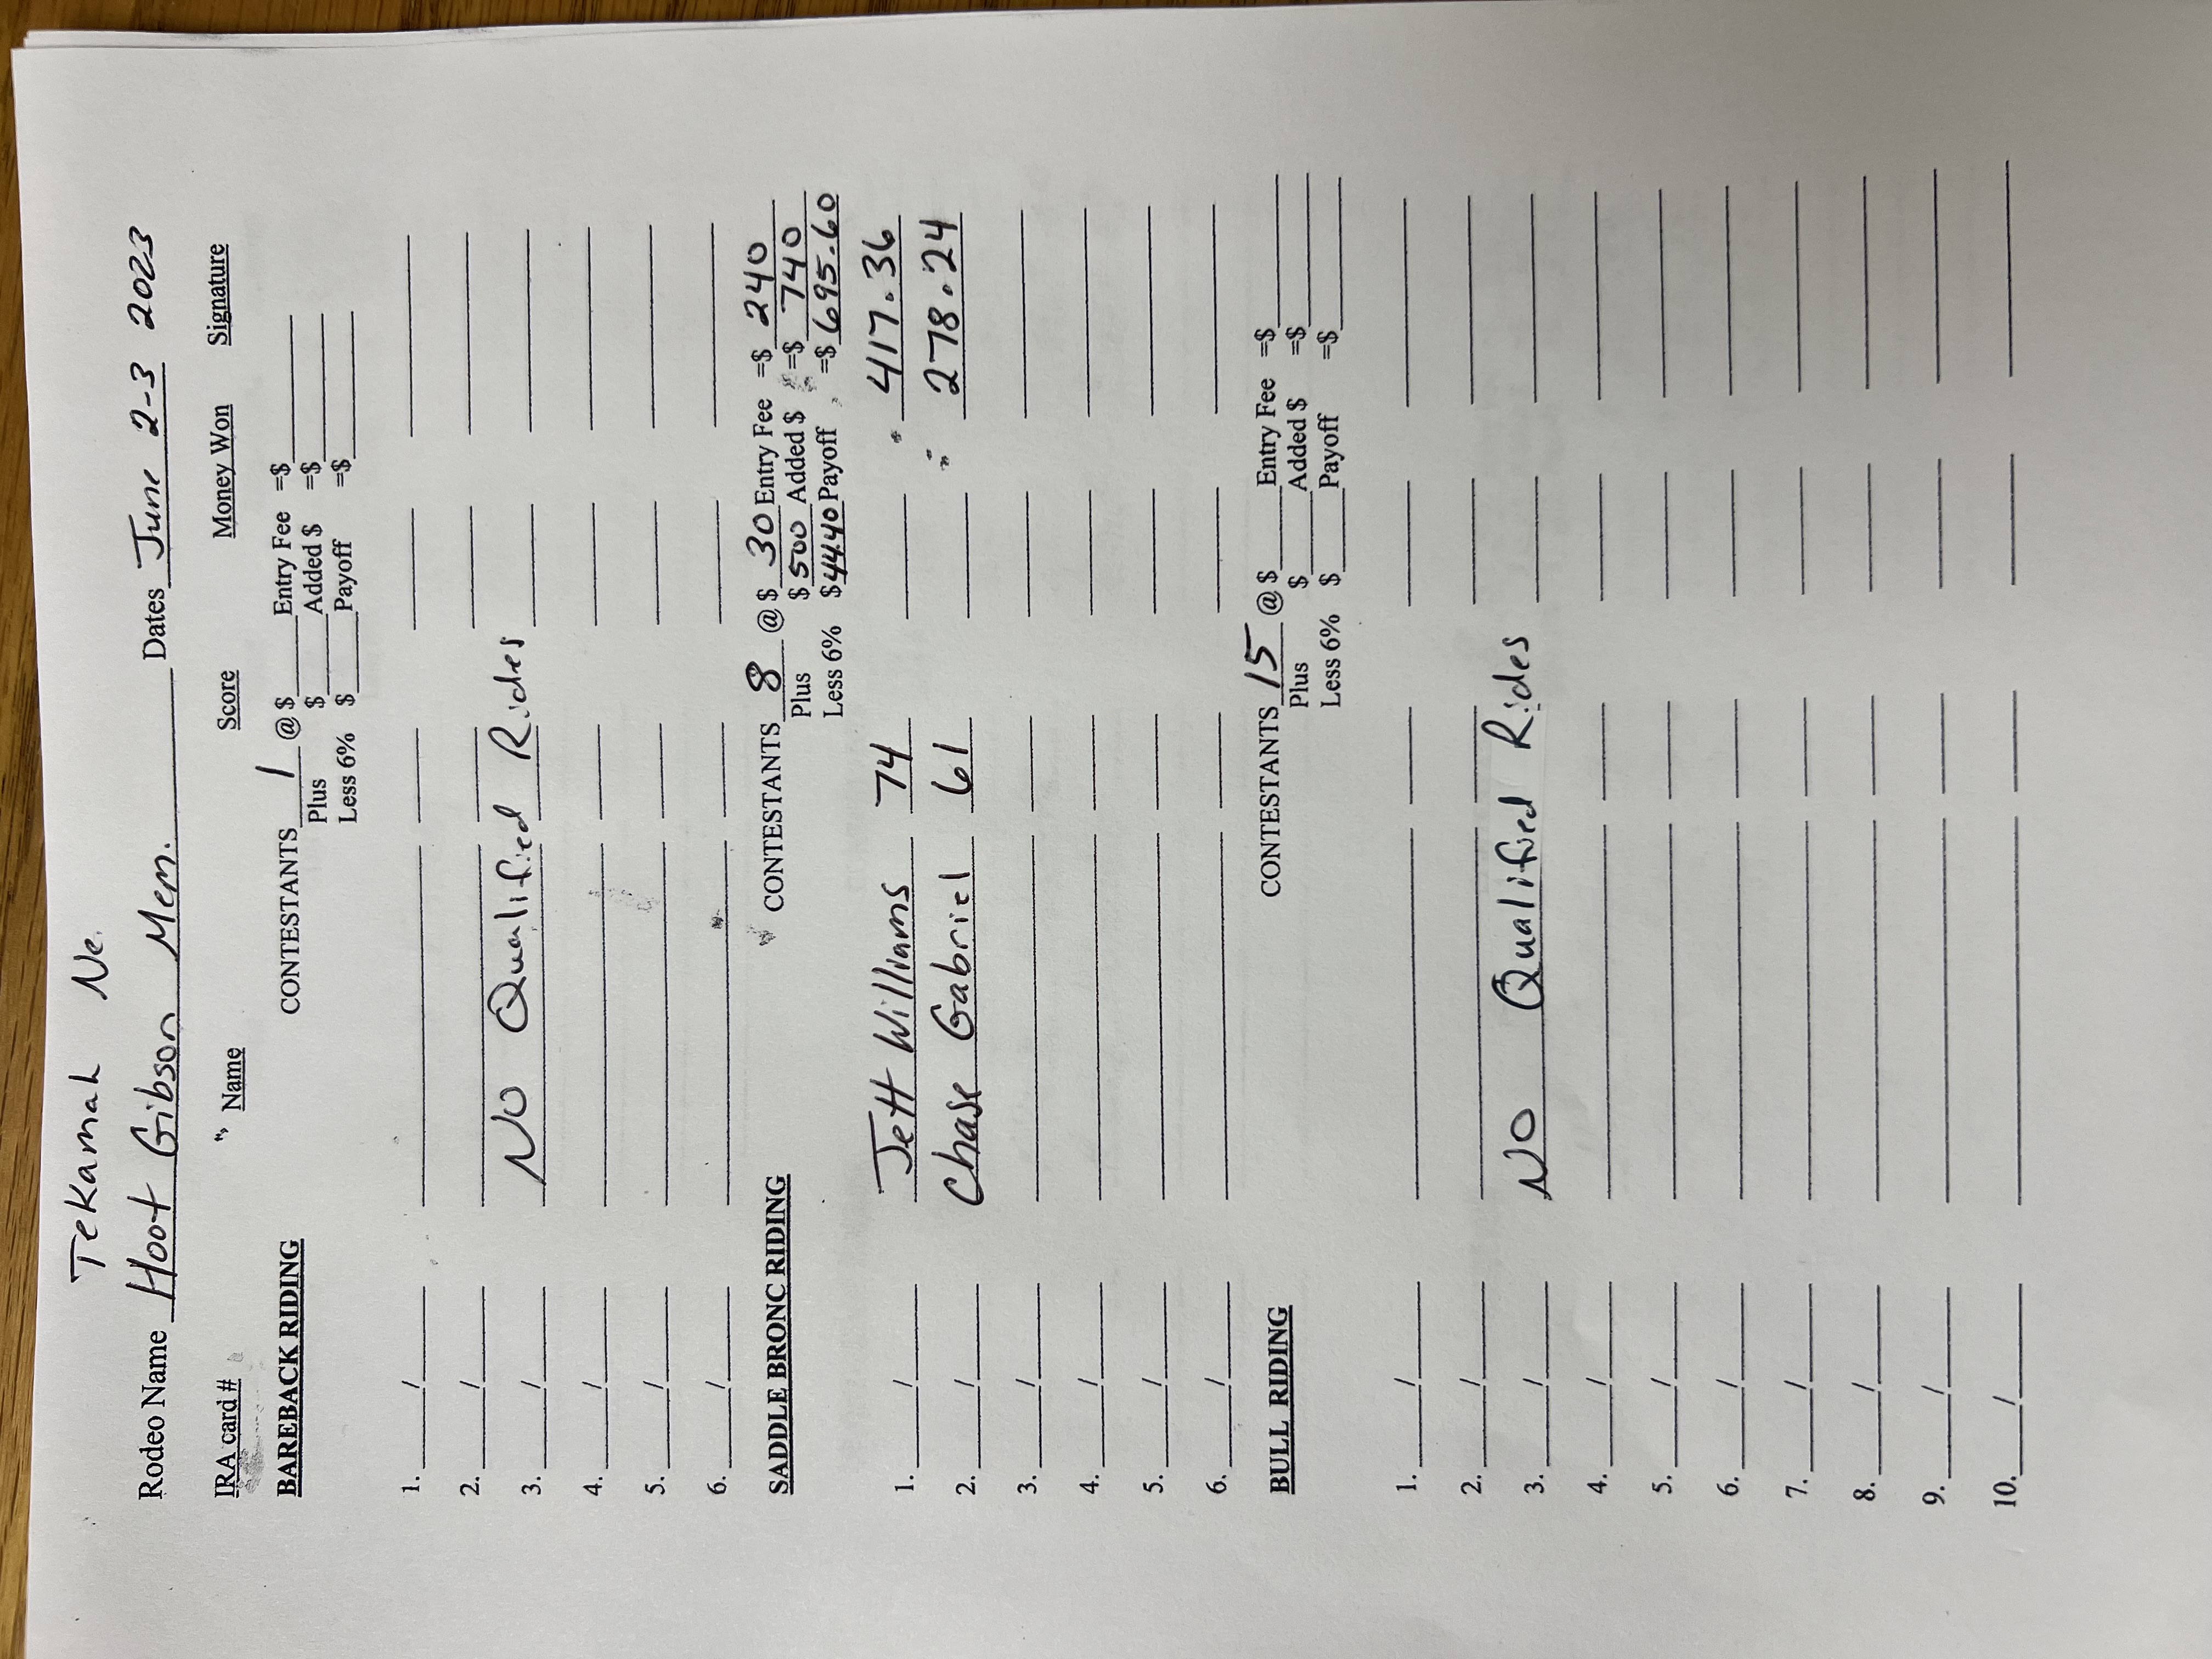 Tekamah Ne.
Rodeo Name Hoot Gibson Mem. Dates June 2-3 2023
IRA card # Name Score Money Won Signature
BAREBACK RIDING CONTESTANTS 1 @ $ Entry Fee =$
Plus $ Added $ =$
Less 6% $ Payoff =$
1. /
2. /
3. / No Qualified Rides
4. /
5. /
6. /
SADDLE BRONC RIDING CONTESTANTS 8 @ $ 30 Entry Fee =$ 240
Plus $ 500 Added $ =$ 740
Less 6% $ 44.40 Payoff =$ 695.60
1. / Jett Williams 74 417.36
2. / Chase Gabriel 61 278.24
3. /
4. /
5. /
6. /
BULL RIDING CONTESTANTS 15 @ $ Entry Fee =$
Plus $ Added $ =$
Less 6% $ Payoff =$
1. /
2. /
3. / No Qualified Rides
4. /
5. /
6. /
7. /
8. /
9. /
10. /